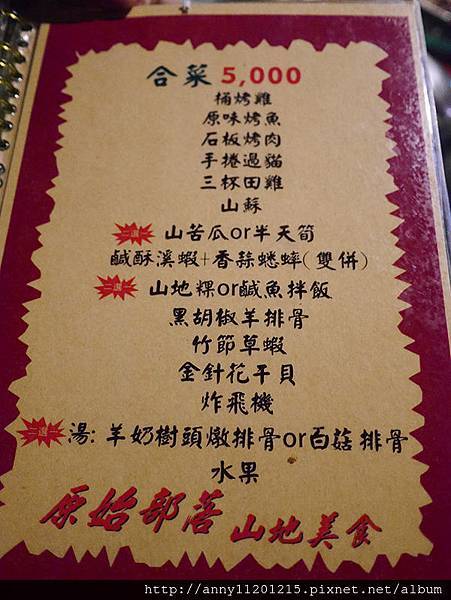 合菜 5,000
桶烤雞
原味烤魚
石板烤肉
手捲過貓
三杯田雞
山蘇
二選一 山苦瓜or半天筍
鹹酥溪蝦+香蒜蟋蟀(雙併)
二選一 山地粿or鹹魚拌飯
黑胡椒羊排骨
竹節草蝦
金針花干貝
炸飛機
二選一 湯: 羊奶樹頭燉排骨or百菇排骨
水果
原始部落 山地美食
http://anny11201215.pixnet.net/album